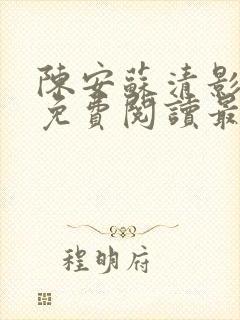 陳安蘇清影
免費閱讀最
程明府